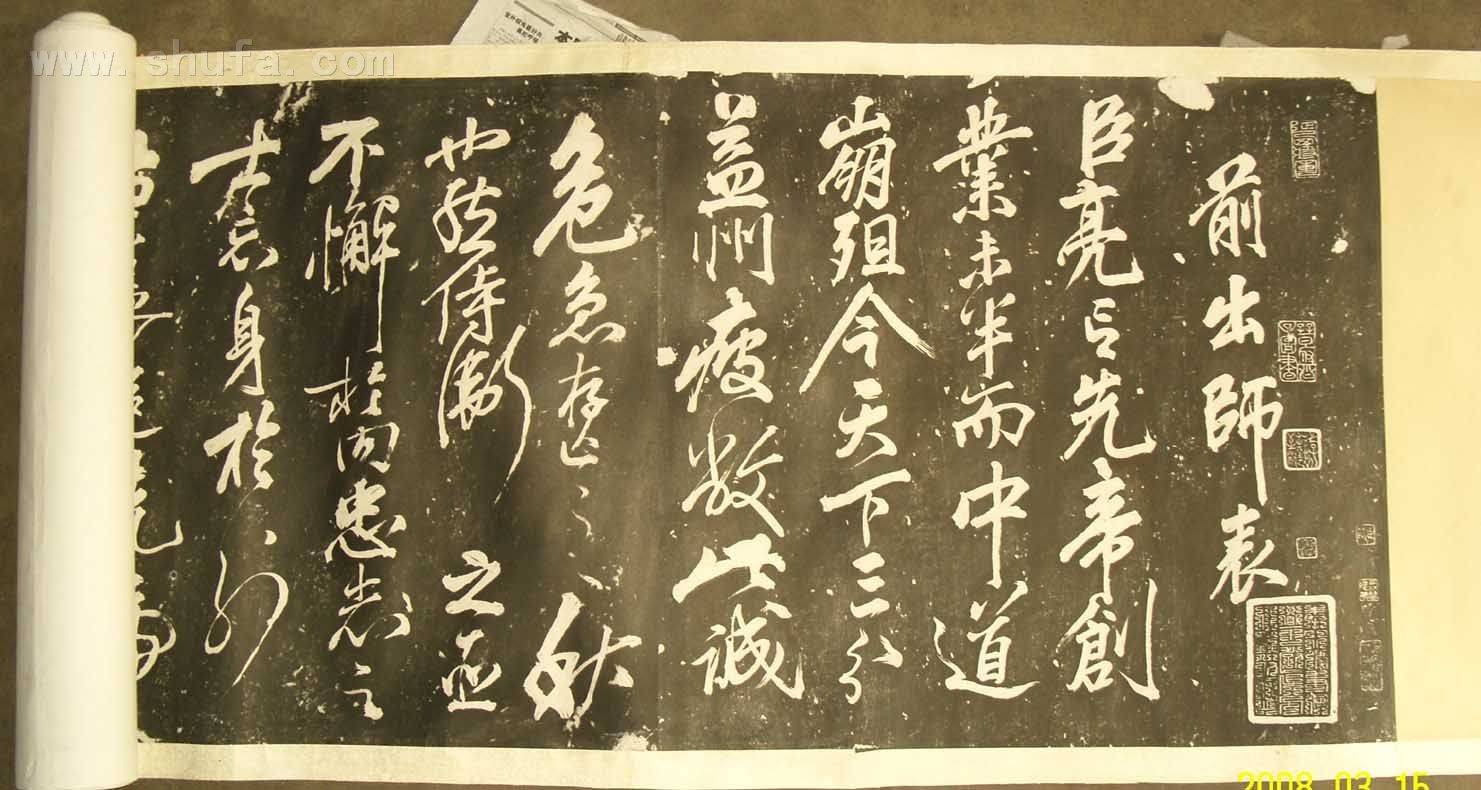 www.shufa.com
前出師表
臣亮言先帝創
業未半而中道
崩殂今天下三分
益州疲敝此誠
危急存亡之秋
也然侍衛之臣
不懈於内忠志之
士忘身於外
2008 03 15